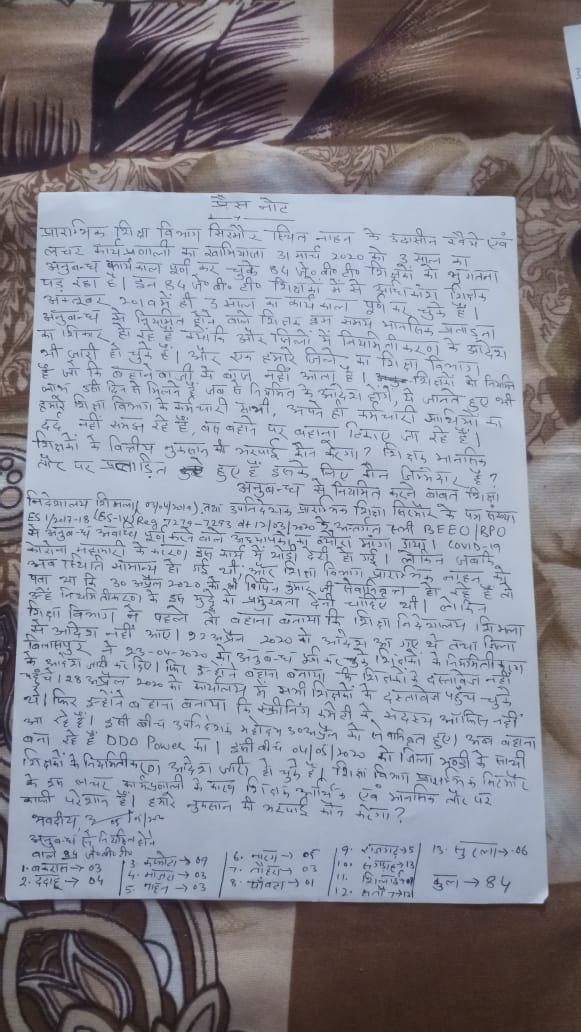 प्रैस नोट
प्रारम्भिक शिक्षा विभाग सिरमौर स्थित नाहन के उदासीन रवैये एवं
लचर कार्यप्रणाली का खामियाजा 31 मार्च 2020 को 3 साल का
अनुबन्ध कार्यकाल पूर्ण कर चुके 84 जे० बी० टी० शिक्षकों को भुगतना
पड़ रहा है। इन 84 जे० बी० टी० शिक्षकों में से अधिकांश शिक्षक
अक्टूबर 2019 में ही 3 साल का कार्यकाल पूर्ण कर चुके हैं।
अनुबन्ध से नियमित होने वाले शिक्षक इस समय मानसिक प्रताड़ना
का शिकार हो रहे हैं क्योंकि और जिला में नियमितीकरण के आदेश
भी जारी हो चुके हैं। और एक हमारे जिले का शिक्षा विभाग
है जो कि बहानेबाजी से बाज नहीं आता है। शिक्षकों को नियमित
उसी दिन से मिलने जब से नियमित के आदेश होंगे, ये जानते हुए भी
हमारे शिक्षा विभाग के कर्मचारी साथी, अपने ही कर्मचारी साथियों का
दर्द नहीं समझ रहे हैं, बस बहाने पर बहाना टिकाए जा रहे हैं।
शिक्षकों के वित्तीय नुकसान की भरपाई कौन करेगा? शिक्षक मानसिक
तौर पर प्रताड़ित हुए हैं इसके लिए कौन जिम्मेदार है?
अनुबन्ध से नियमित करने बाबत शिक्षा
निदेशालय शिमला तथा उपनिदेशक प्रारम्भिक शिक्षा सिरमौर के पत्र संख्या
7279-7293 dt 12/03/2020 के अन्तर्गत सभी BEEO/BPO
से अनुबन्ध अवधि पूर्ण करने वाले अध्यापकों का ब्योरा मांगा गया। COVID-19
कोरोना महामारी के कारण इस कार्य में थोड़ी देरी हो गई। लेकिन जबकि
अब स्थिति सामान्य हो गई थी, और शिक्षा विभाग प्रारम्भिक नाहन को
पता था कि 30 अप्रैल 2020 को श्री कुमार जी सेवानिवृत्त हो रहे हैं तो
उन्हें नियमितीकरण के इस मुद्दे को प्रमुखता देनी चाहिए थी। लेकिन
शिक्षा विभाग ने पहले तो बहाना बनाया कि शिक्षा निदेशालय शिमला
से आदेश नहीं आए। 22 अप्रैल 2020 को आदेश आ गए थे तथा जिला
बिलासपुर ने 23-04-2020 को अनुबन्ध पूर्ण कर चुके शिक्षकों के नियमितीकरण
के आदेश जारी कर दिए। फिर इन्होंने बहाना बनाया कि शिक्षकों के दस्तावेज नहीं
पहुंचे। 28 अप्रैल 2020 को कार्यालय में सभी शिक्षकों के दस्तावेज पहुँच चुके
थे। फिर इन्होंने बहाना बनाया कि स्क्रीनिंग कमेटी के सदस्य ऑफिस नहीं
आ रहे हैं। इसी बीच उपनिदेशक महोदय 30 अप्रैल को सेवानिवृत्त हुए। अब बहाना
बना रहे हैं DDO Power का। इसी बीच 04/05/2020 को जिला मण्डी के साथी
शिक्षकों के नियमितीकरण आदेश जारी हो चुके हैं। शिक्षा विभाग प्रारम्भिक सिरमौर
के इस लचर कार्यप्रणाली के कारण शिक्षक आर्थिक एवं मानसिक तौर पर
काफी परेशान हैं। हमारे नुकसान की भरपाई कौन करेगा?
भवदीय,
अनुबन्ध से नियमित होने
वाले 84 जे० बी० टी०
1. बकरास → 03
2. ददाहू → 04
3. → 09
4. → 03
5. नाहन → 03
6. नारग → 05
7. → 03
8. पांवटा → 01
9. राजगढ़ → 5
10. संगड़ाह → 13
11. शिलाई →
12. सतौन →
13. सुरला → 06
कुल → 84